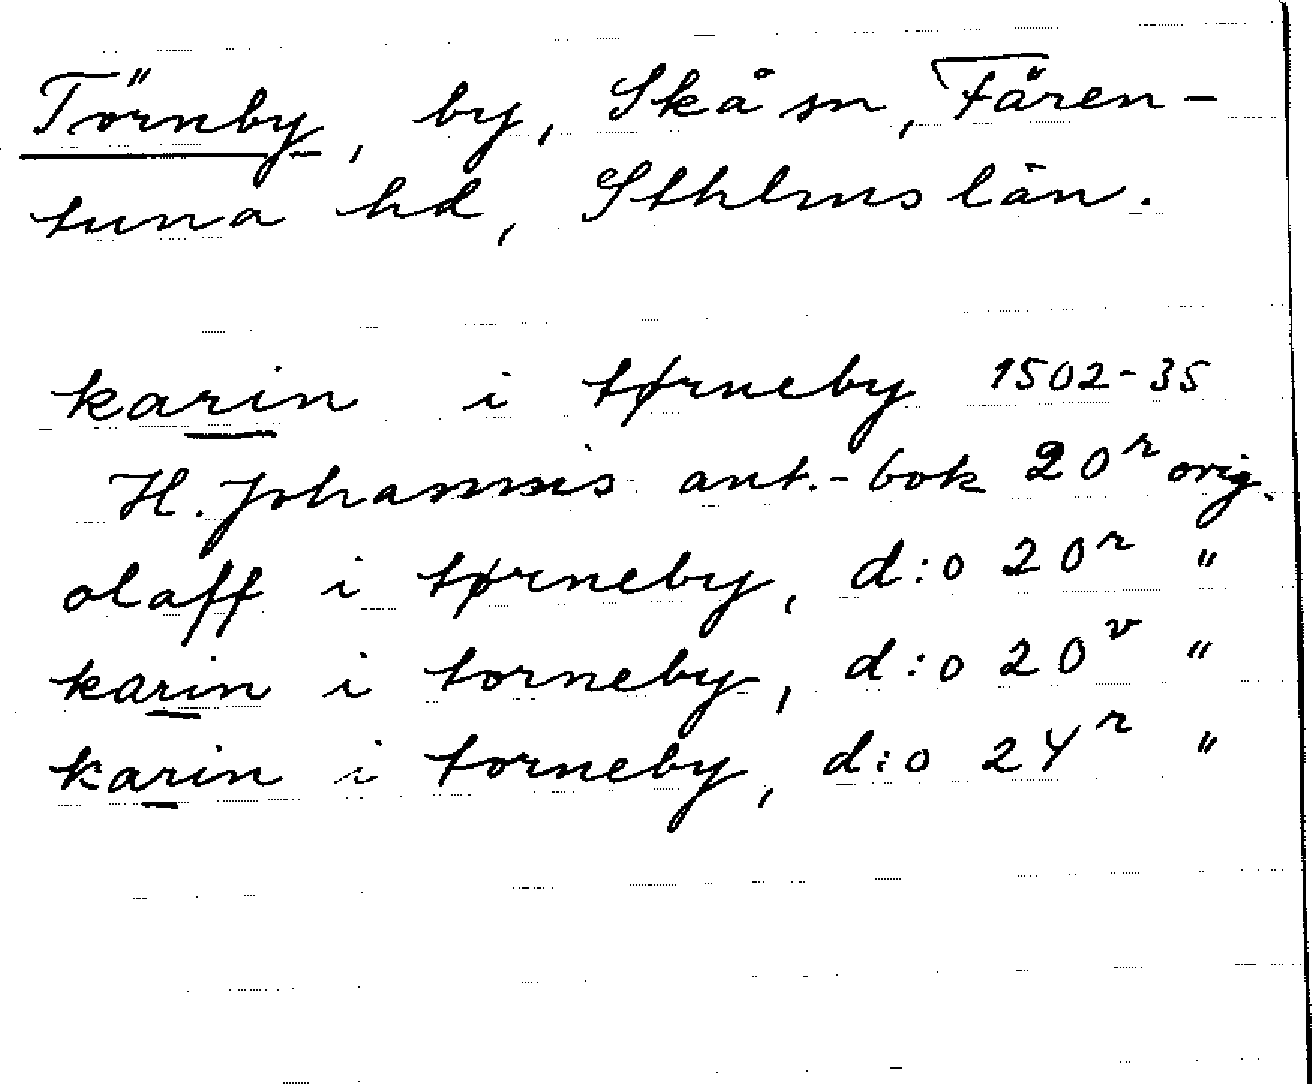 Törnby, by, Skå sn, Fären-
tuna hd, Sthlms län.
karin i tørneby 1502-35
H. Johannis ant.-bok 20r orig.
olaff i tørneby, d:o 20r "
karin i torneby, d:o 20v "
karin i torneby, d:o 24r "